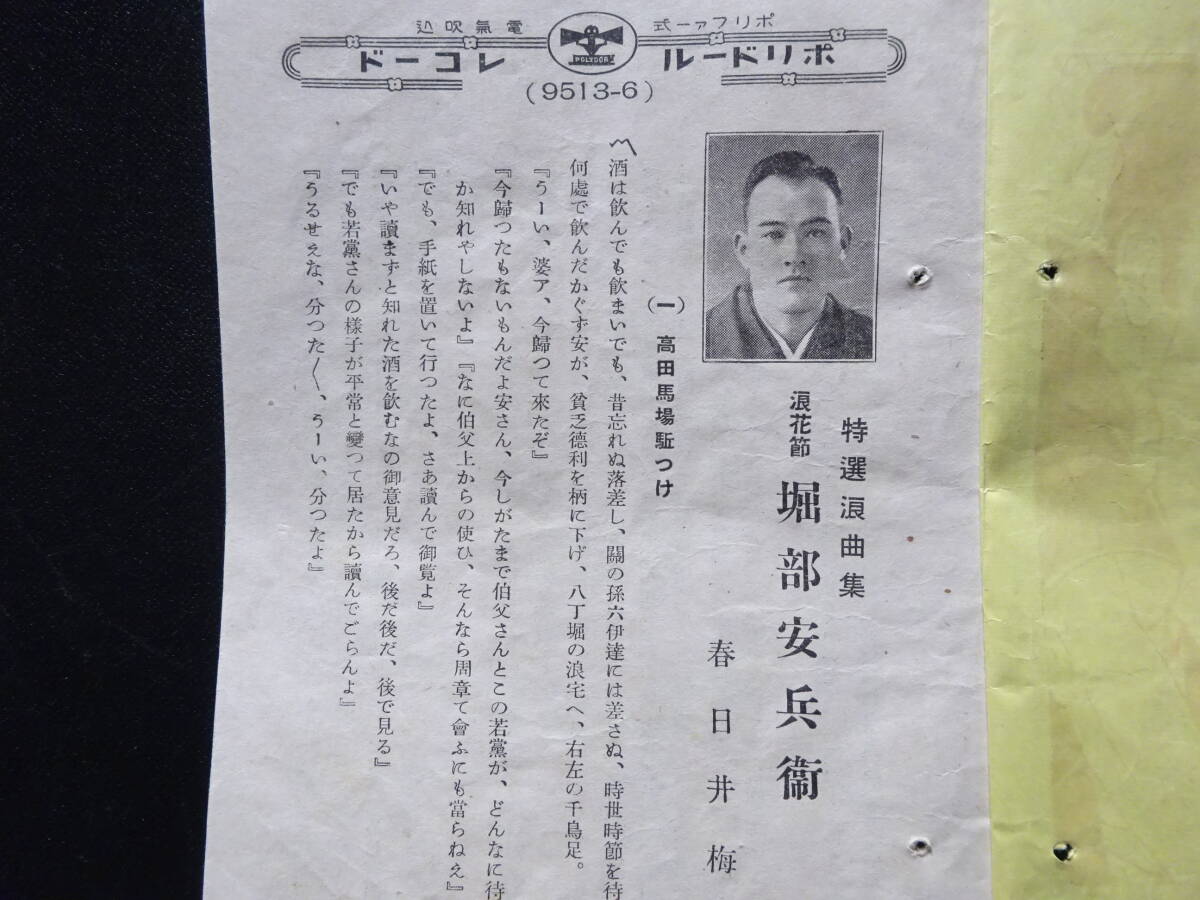 ポリファー式 電氣吹込
ポリドール レコード
POLYDOR
(9513-6)
特選浪曲集
浪花節 堀部安兵衞
春日井梅
(一) 高田馬場駈つけ
〽酒は飲んでも飲まいでも、昔忘れぬ落差し、關の孫六伊達には差さぬ、時世時節を待
何處で飲んだかぐず安が、貧乏德利を柄に下げ、八丁堀の浪宅へ、右左の千鳥足。
『うーい、婆ア、今歸つて來たぞ』
『今歸つたもないもんだよ安さん、今しがたまで伯父さんとこの若黨が、どんなに待
か知れやしないよ』『なに伯父上からの使ひ、そんなら周章て會ふにも當らねえ』
『でも、手紙を置いて行つたよ、さあ讀んで御覧よ』
『いや讀まずと知れた酒を飲むなの御意見だろ、後だ後だ、後で見る』
『でも若黨さんの樣子が平常と變つて居たから讀んでごらんよ』
『うるせえな、分つた〱、うーい、分つたよ』